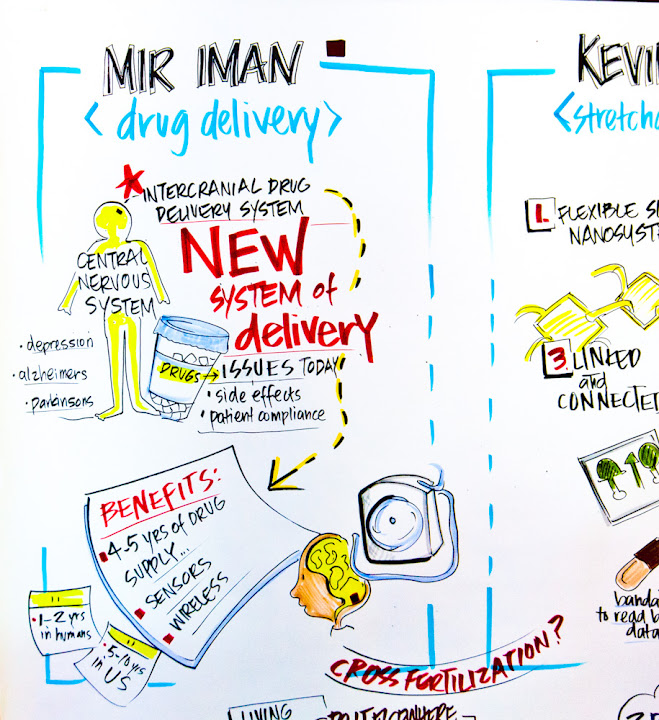 MIR IMAN
<drug delivery>
INTERCRANIAL DRUG
DELIVERY SYSTEM
NEW
SYSTEM of
delivery
CENTRAL
NERVOUS
SYSTEM
• depression
• alzheimers
• parkinsons
DRUGS → ISSUES TODAY
• side effects
• patient compliance
BENEFITS:
4-5 yrs of DRUG
SUPPLY...
SENSORS
WIRELESS
• 1-2 yrs
in humans
• 5-10 yrs
in US
CROSS FERTILIZATION?
LIVING
KEVIN
<stretcha
1. FLEXIBLE
NANOSYST
3. LINKED
and
CONNECTED
banda
to read b
data